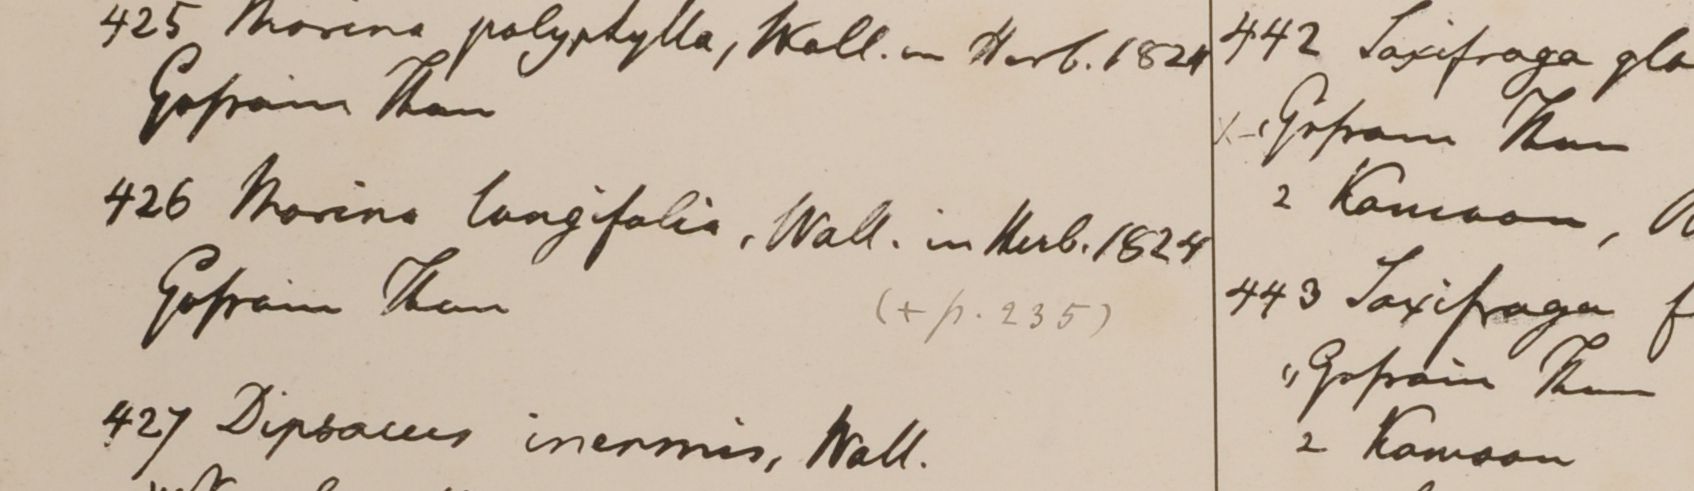 425 Morina polyphylla, Wall. in Herb. 1824
Gosain Than
426 Morina longifolia, Wall. in Herb. 1824
Gosain Than
(+ p. 235)
427 Dipsacus inermis, Wall.
442 Saxifraga gla
Gosain Than
2 Kamaon,
443 Saxifraga f
Gosain Than
2 Kamaon